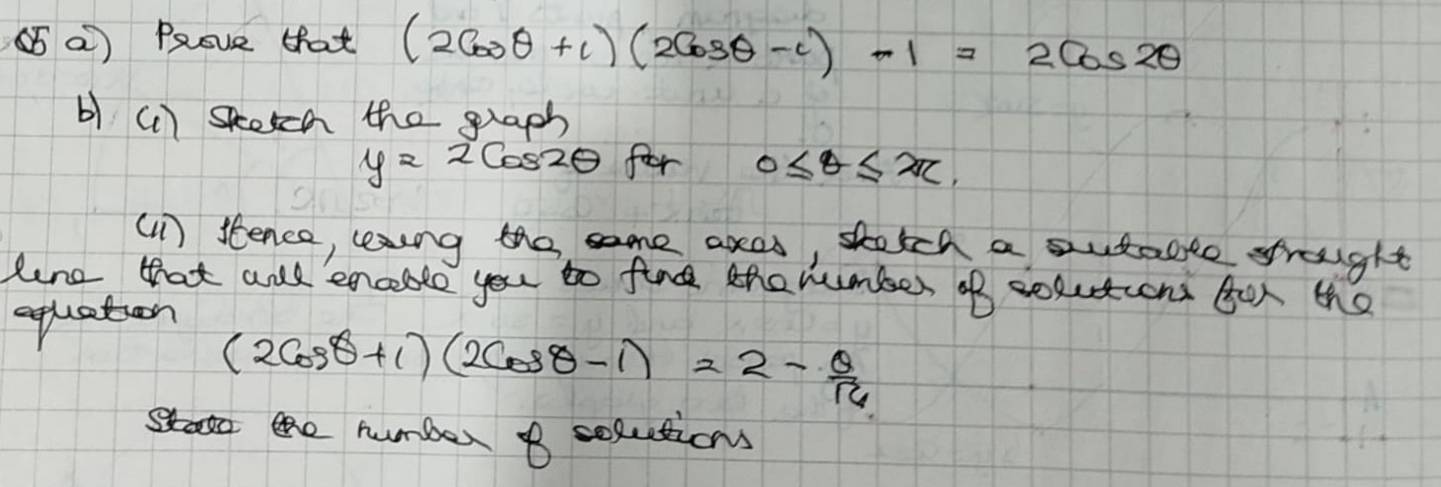 Q5 a) Prove that (2Cosθ + 1)(2Cosθ - 1) - 1 = 2Cos2θ
b) (i) Sketch the graph
y = 2Cos2θ for 0 ≤ θ ≤ 2π.
(ii) Hence, using the same axes, sketch a suitable straight
line that will enable you to find the number of solutions for the
equation
(2Cosθ + 1)(2Cosθ - 1) = 2 - θ/π.
State the number of solutions